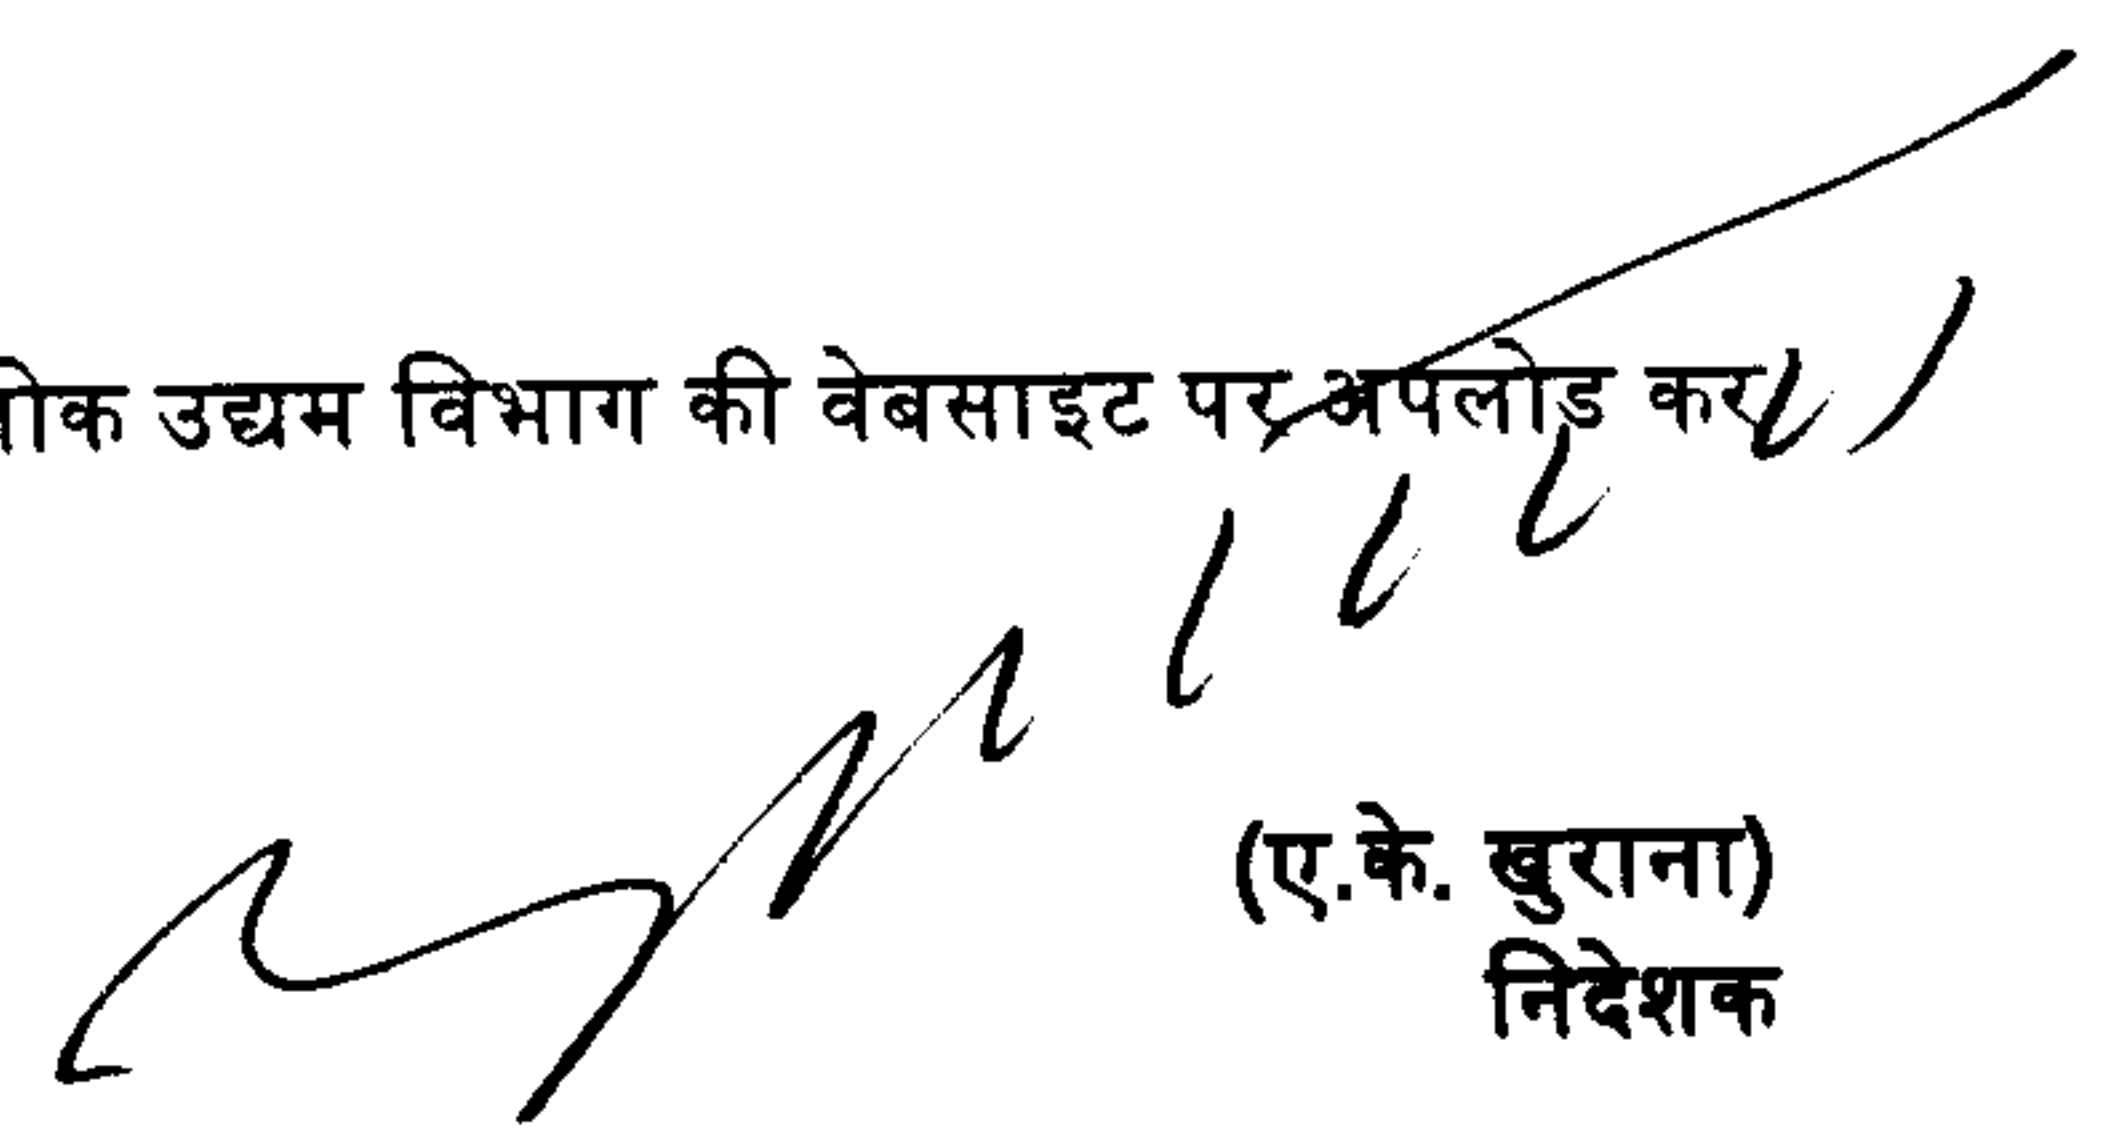 उद्यम विभाग की वेबसाइट पर अपलोड कर
(ए.के. खुराना)
निदेशक